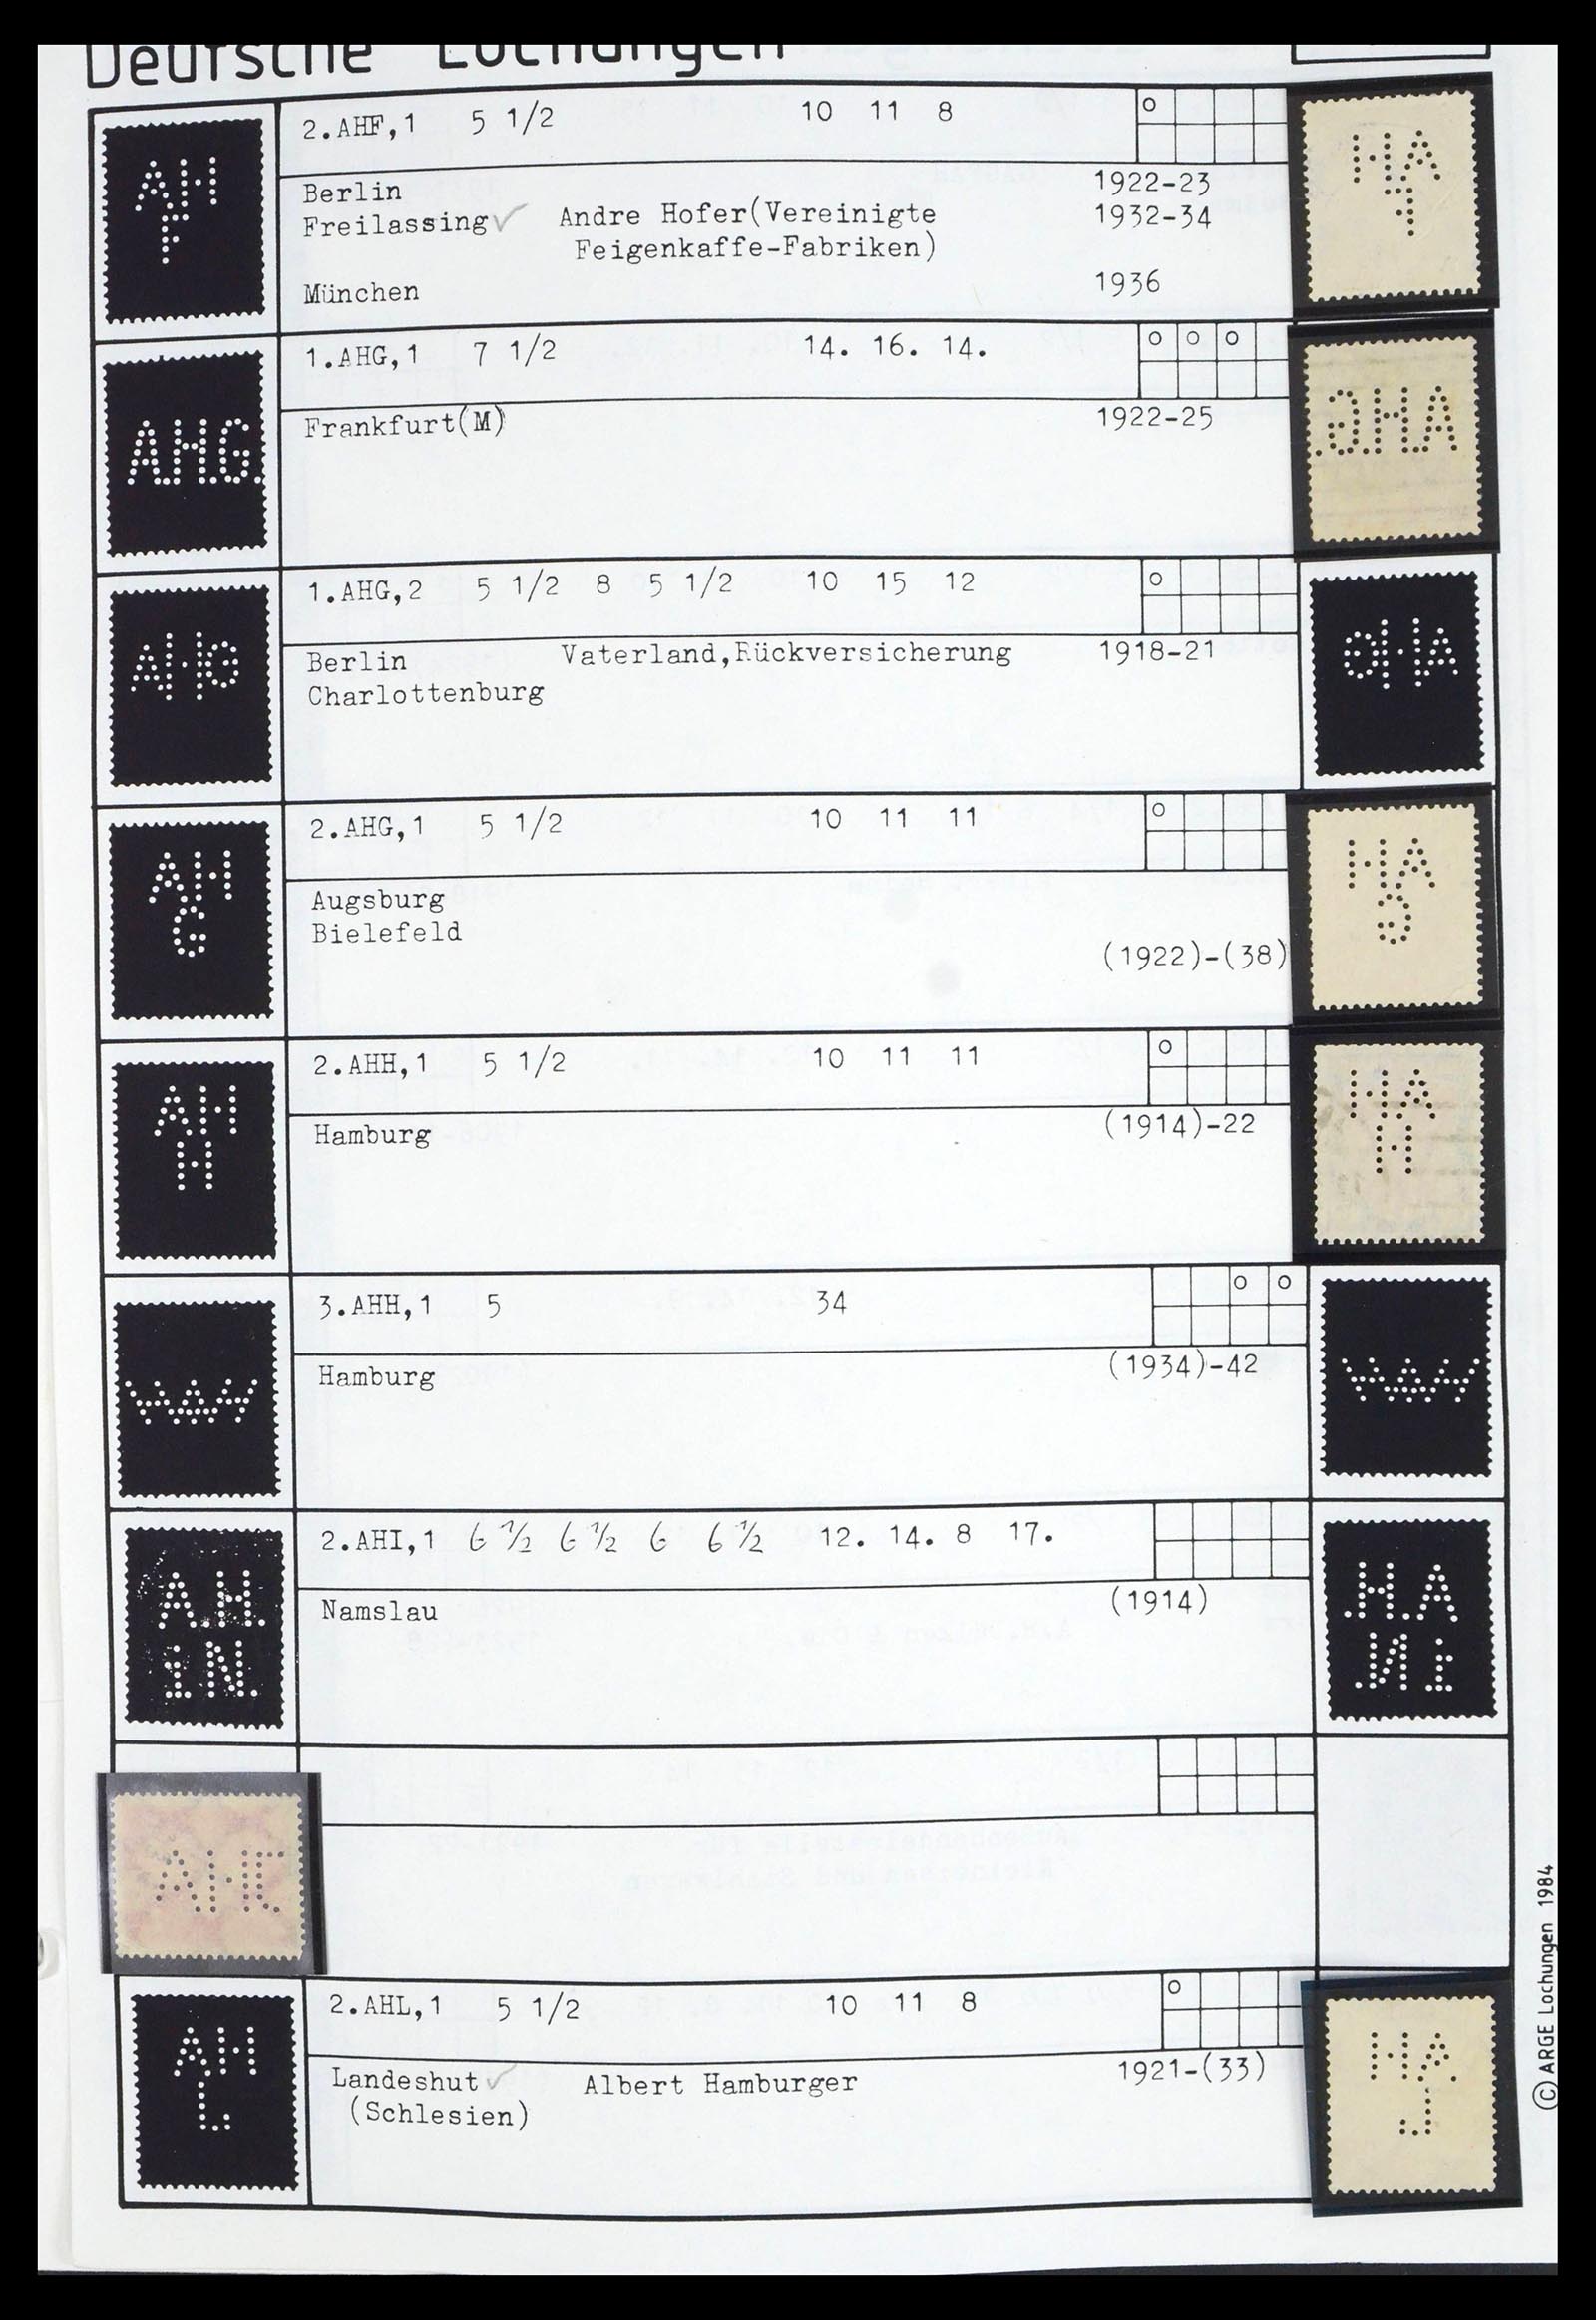 Deutsche Lochungen
AH
F
2.AHF,1 5 1/2 10 11 8
Berlin 1922-23
Freilassing✓ Andre Hofer(Vereinigte 1932-34
Feigenkaffe-Fabriken)
München 1936
A.H.G.
1.AHG,1 7 1/2 14. 16. 14.
Frankfurt(M) 1922-25
AHG
1.AHG,2 5 1/2 8 5 1/2 10 15 12
Berlin Vaterland,Rückversicherung 1918-21
Charlottenburg
AH
G
2.AHG,1 5 1/2 10 11 11
Augsburg
Bielefeld
(1922)-(38)
AH
H
2.AHH,1 5 1/2 10 11 11
Hamburg (1914)-22
3.AHH,1 5 34
Hamburg (1934)-42
A.H.
iN.
2.AHI,1 6 1/2 6 1/2 6 6 1/2 12. 14. 8 17.
Namslau (1914)
AH
L
2.AHL,1 5 1/2 10 11 8
Landeshut✓ Albert Hamburger 1921-(33)
(Schlesien)
© ARGE Lochungen 1984